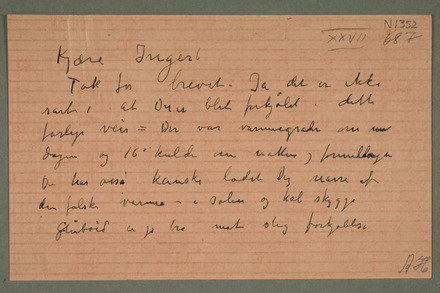 N 1352
XXVII 687
Kjære Inger!
Tak for brevet – Ja det er ikke
rart, at Du er blet forkjølet i dette
forbyt veir = Der var varmegrader om
dagen og 16° kulde om natten,
Du har også kanske ladet Dig narre af
den falske varme – i solen og kal skygge
er jo bra mot slig forkjølelse